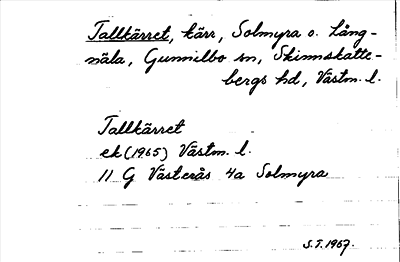 Tallkärret, kärr, Solmyra o. Lång-
näla, Gunnilbo sn, Skinnskatte-
bergs hd, Västm. l.
Tallkärret
ek (1965) Västm. l.
11 G Västerås 4a Solmyra
S.T. 1967.